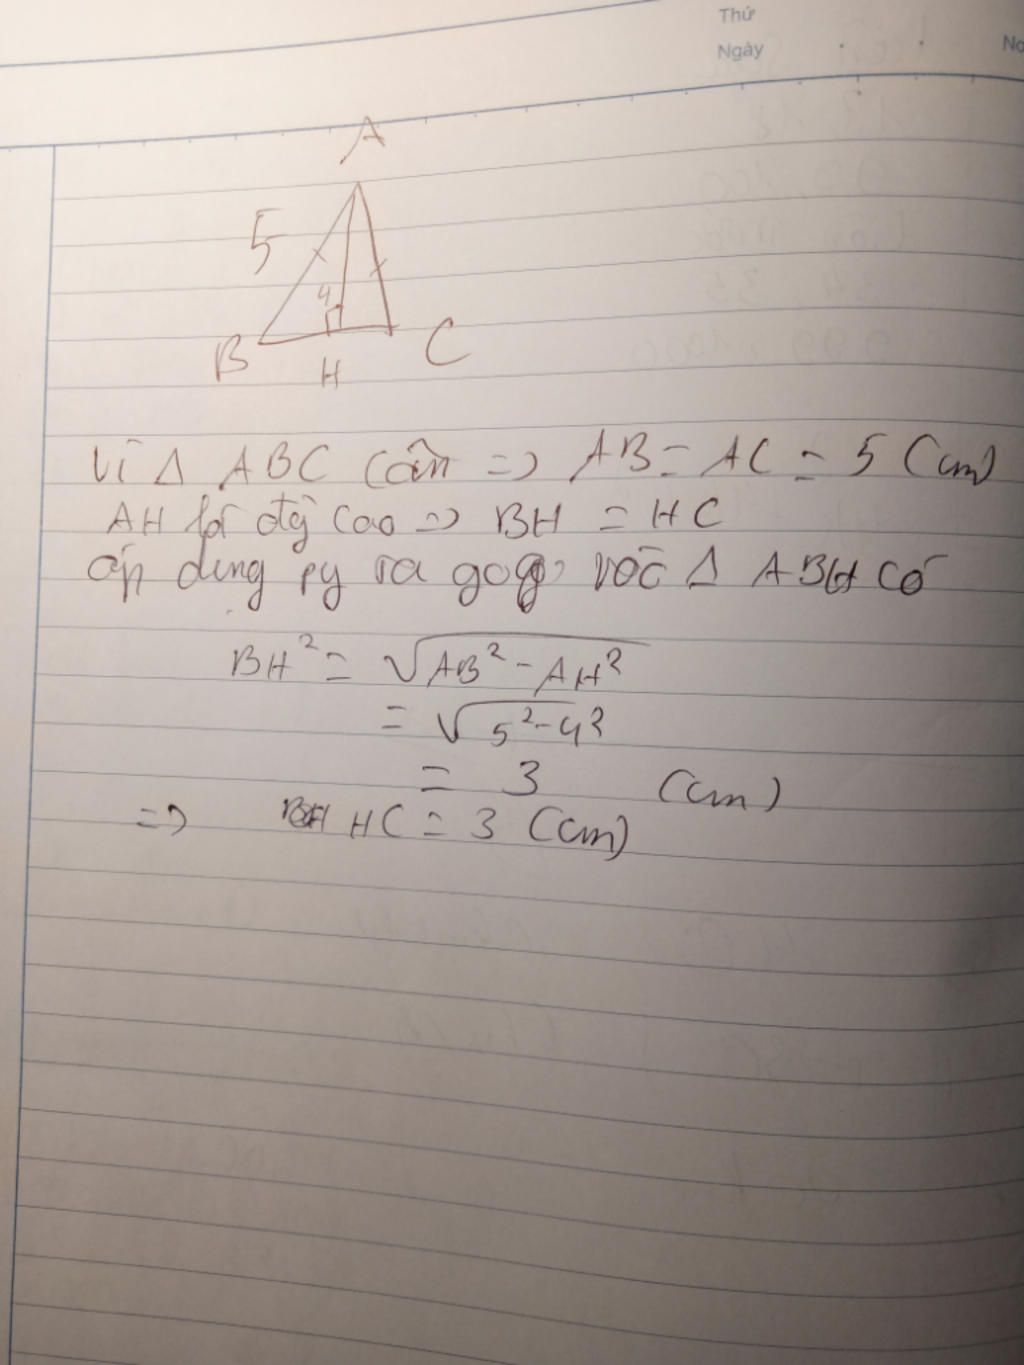 Thứ
Ngày
No
A
5
4
B
H
C
Vì Δ ABC cân => AB = AC = 5 (cm)
AH là đg cao => BH = HC
áp dụng py ta go với Δ ABH có
BH² = √AB² - AH²
= √5² - 4²
= 3 (cm)
=> HC = 3 (cm)